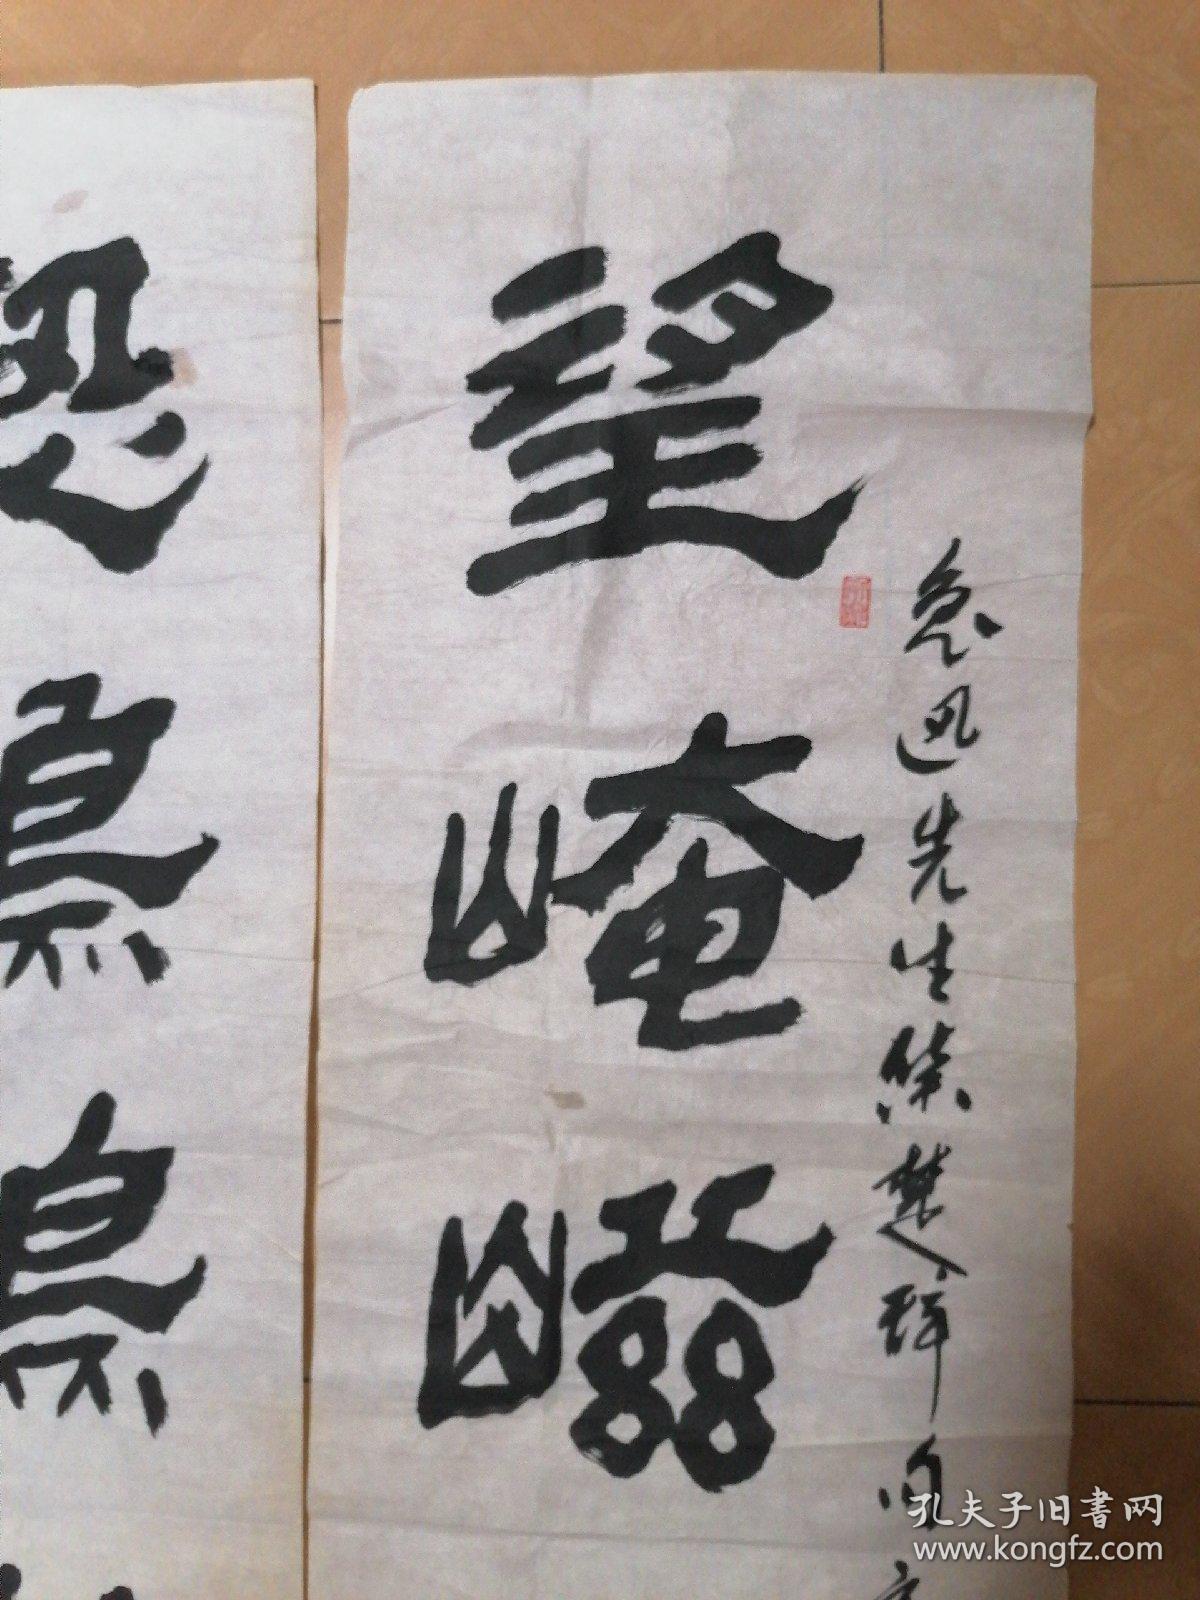 望崦嵫
鲁迅先生集楚辞句
恐
孔夫子旧书网
www.kongfz.com